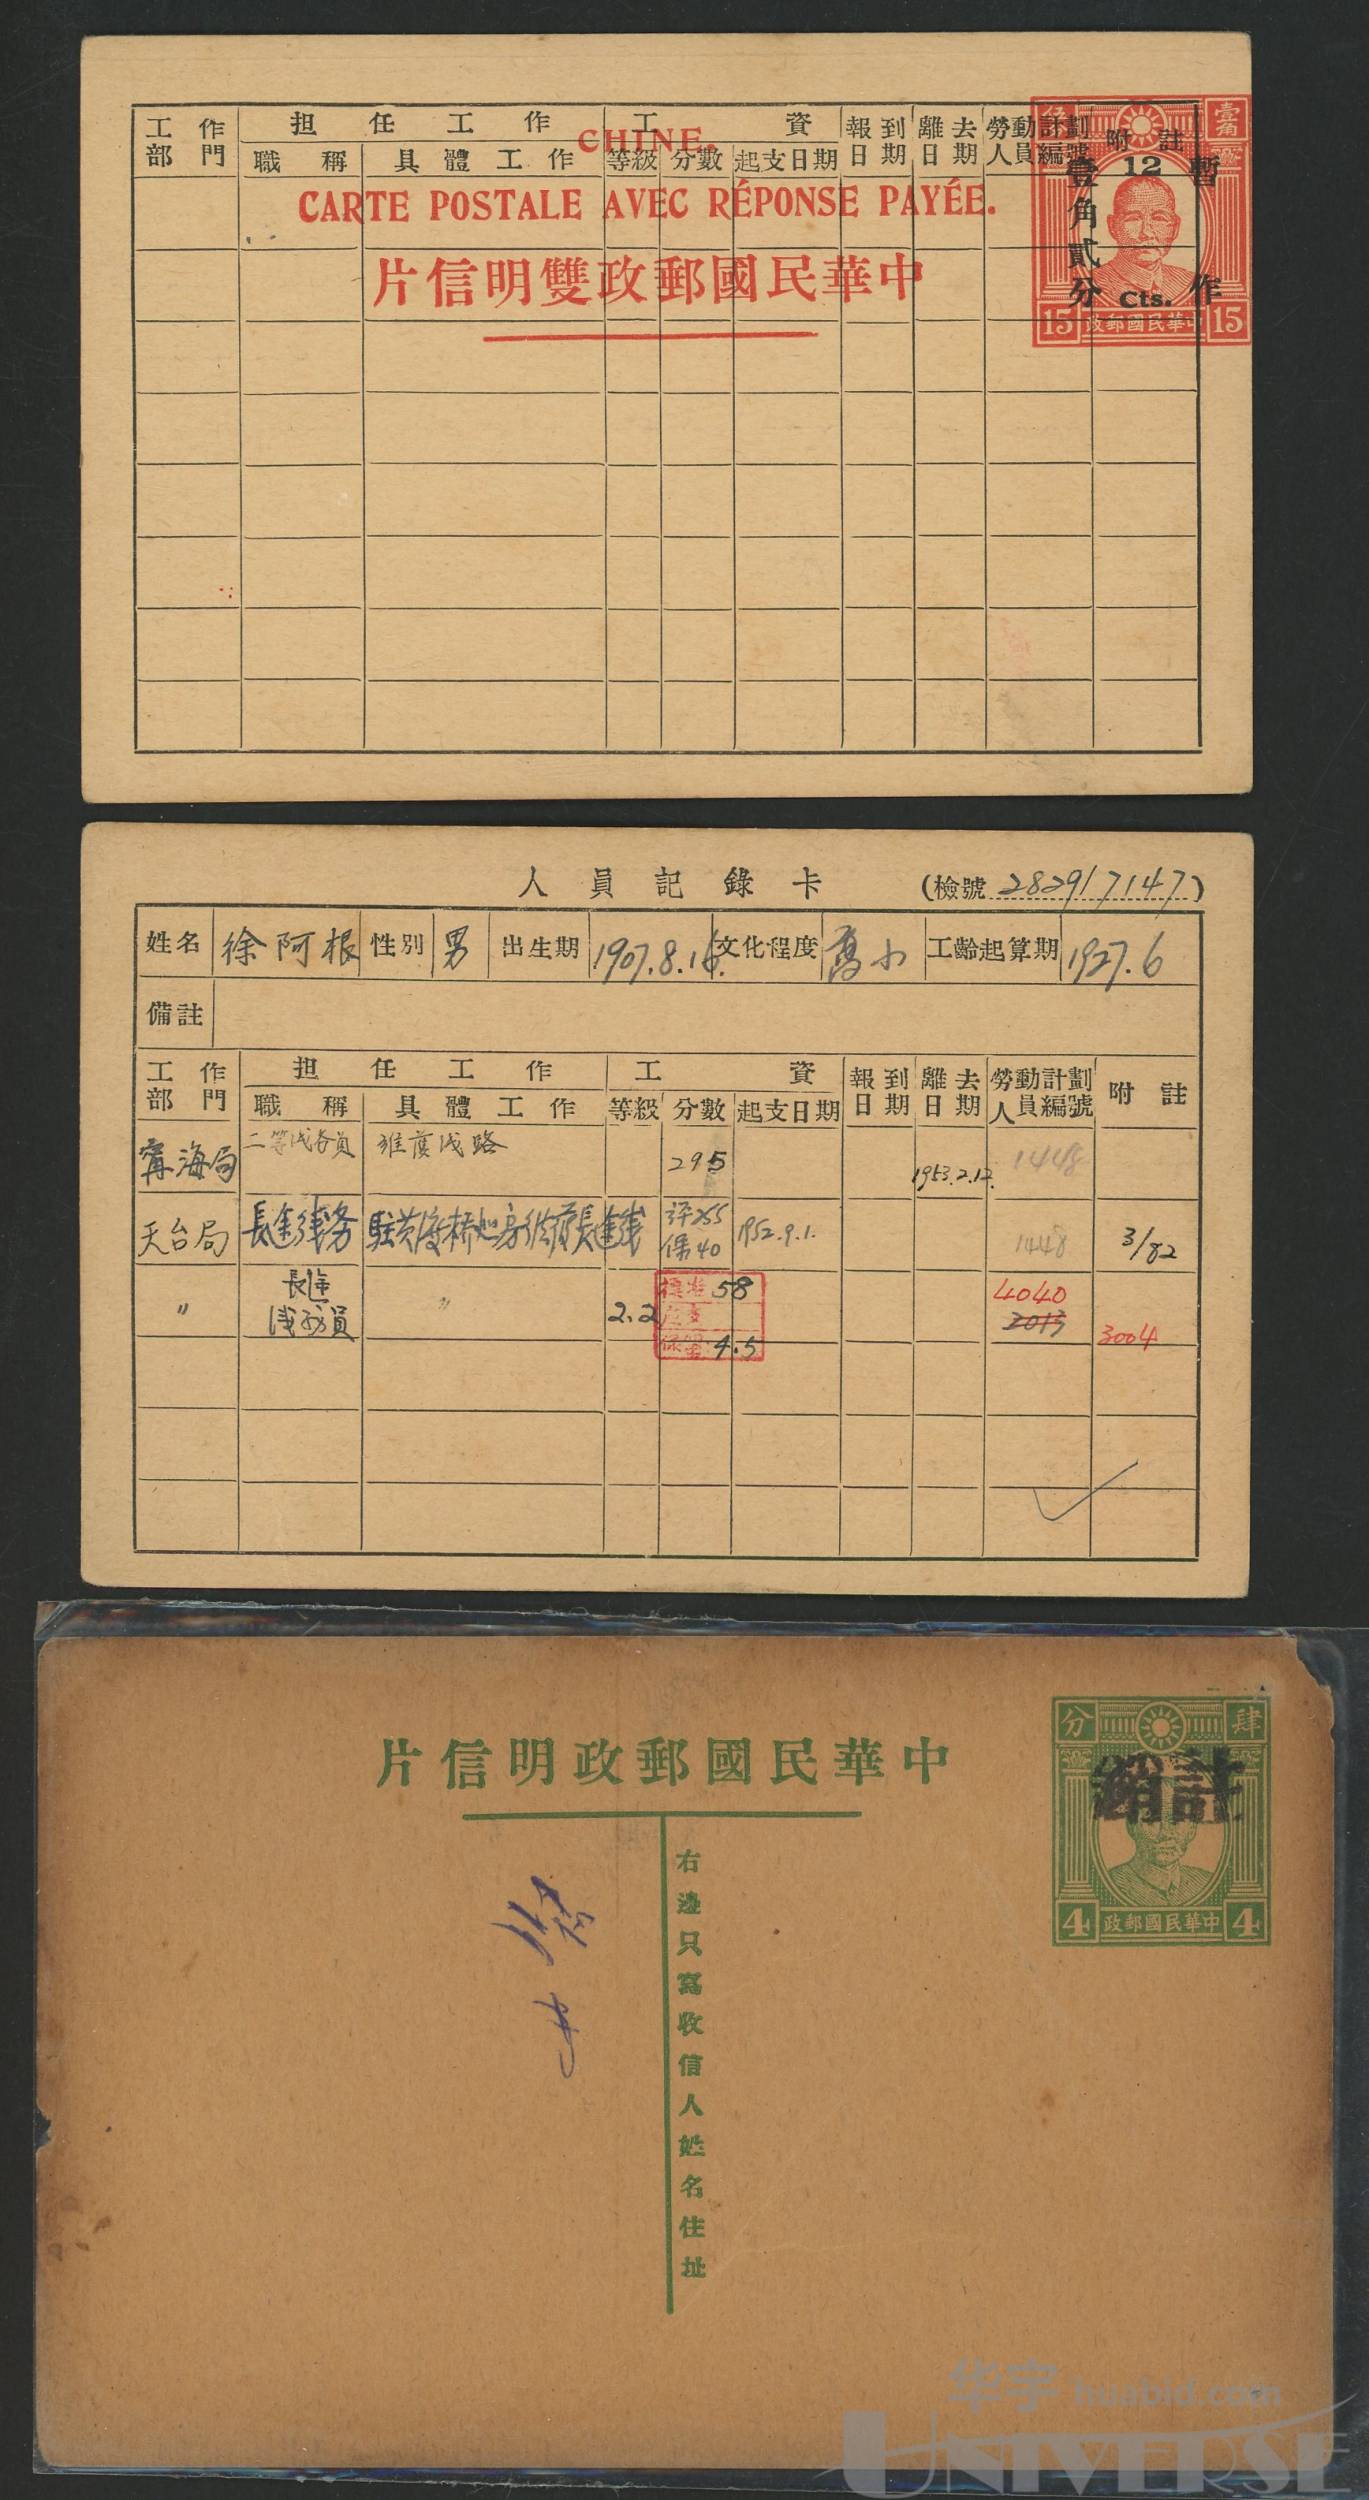 工作部門 擔任工作 工資 報到日期 離去日期 勞動計劃人員編號 附註
職稱 具體工作 等級 分數 起支日期
CHINE.
CARTE POSTALE AVEC RÉPONSE PAYÉE.
片信明雙政郵國民華中
壹角
暫作
壹角貳分
12
Cts.
15 政郵國民華中 15
人員記錄卡
(檢號 282917147)
姓名 徐阿根 性別 男 出生期 1907.8.16. 文化程度 高小 工齡起算期 1927.6
備註
工作部門 擔任工作 工資 報到日期 離去日期 勞動計劃人員編號 附註
職稱 具體工作 等級 分數 起支日期
寧海局 二等线务員 維護线路 295 1953.2.12. 1448
天台局 長途线务 評255 保40 1952.9.1. 1448 3/82
〃 長途线务員 〃 2.2 標準 58 4040 2013 3004
保留 4.5
分 肆
片信明政郵國民華中
銷註
4 政郵國民華中 4
右邊只寫收信人姓名住址
华宇 huabid.com
UNIVERSE